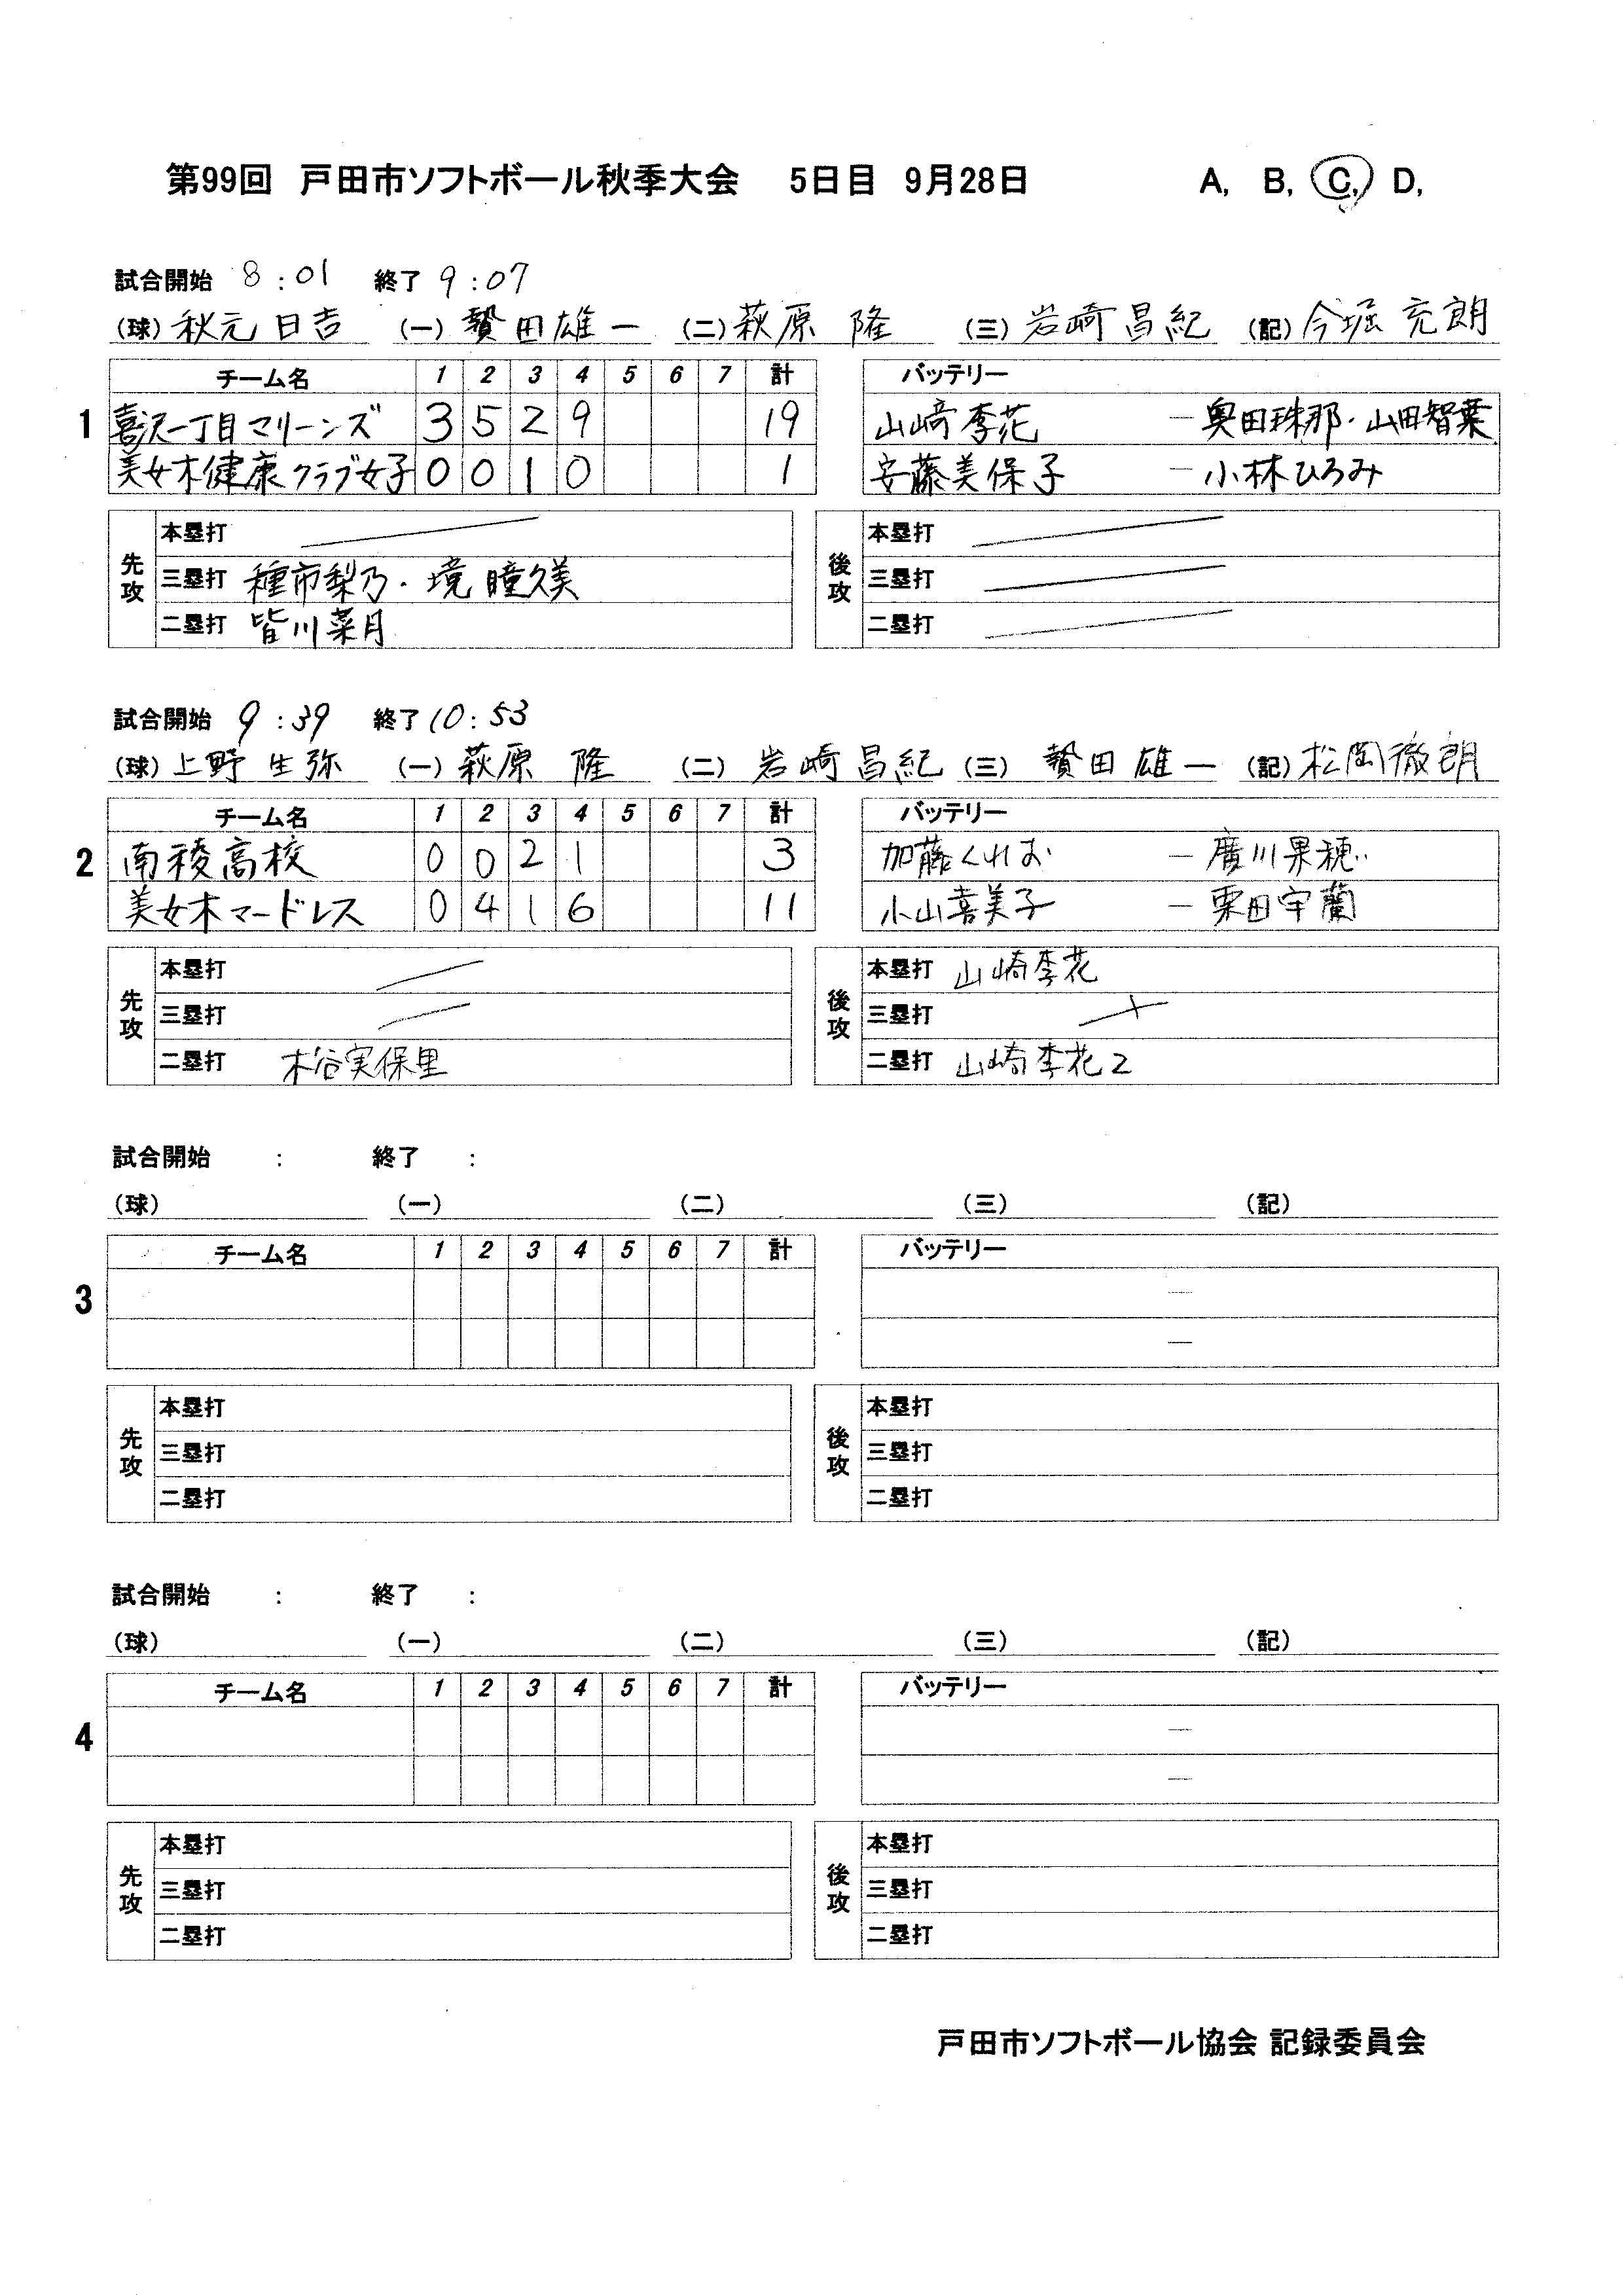 第99回 戸田市ソフトボール秋季大会 5日目 9月28日 A, B, C, D,
試合開始 8:01 終了 9:07
(球) 秋元 日吉 (一) 贄田雄一 (二) 萩原 隆 (三) 岩崎昌紀 (記) 今堀 充朗
チーム名 1 2 3 4 5 6 7 計 バッテリー
1 喜沢一丁目マリーンズ 3 5 2 9 19 山﨑李花 ― 奥田珠那・山田智葉
美女木健康クラブ女子 0 0 1 0 1 安藤美保子 ― 小林ひろみ
先攻 本塁打 後攻 本塁打
三塁打 種市梨乃・境 瞳久美 三塁打
二塁打 皆川菜月 二塁打
試合開始 9:39 終了 10:53
(球) 上野 生弥 (一) 萩原 隆 (二) 岩崎昌紀 (三) 贄田 雄一 (記) 松岡徹朗
チーム名 1 2 3 4 5 6 7 計 バッテリー
2 南稜高校 0 0 2 1 3 加藤くれお ― 廣川果穂
美女木マードレス 0 4 1 6 11 小山喜美子 ― 栗田宇蘭
先攻 本塁打 後攻 本塁打 山崎李花
三塁打 三塁打
二塁打 木谷実保里 二塁打 山崎李花2
試合開始 : 終了 :
(球) (一) (二) (三) (記)
チーム名 1 2 3 4 5 6 7 計 バッテリー
3 ―
―
先攻 本塁打 後攻 本塁打
三塁打 三塁打
二塁打 二塁打
試合開始 : 終了 :
(球) (一) (二) (三) (記)
チーム名 1 2 3 4 5 6 7 計 バッテリー
4 ―
―
先攻 本塁打 後攻 本塁打
三塁打 三塁打
二塁打 二塁打
戸田市ソフトボール協会 記録委員会